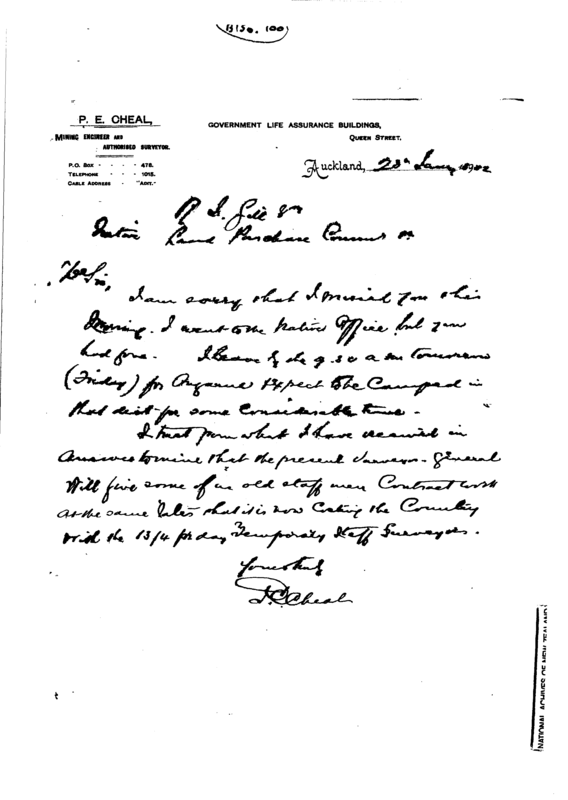 H150. 100
P. E. CHEAL,
MINING ENGINEER AND
AUTHORISED SURVEYOR.
P.O. BOX - - - 478.
TELEPHONE - - - 1015.
CABLE ADDRESS - "ADIT."
GOVERNMENT LIFE ASSURANCE BUILDINGS,
QUEEN STREET.
Auckland, 23 Jany 1902
Native Land Purchase
Sir,
I am sorry that I missed you this
morning. I went to the Native Office but you
had gone. I leave by the 9.50 a m tomorrow
(Friday) for expect to be Camped in
that dist for some Considerable time.
I trust from what I have received in
Answer to mine that the present Surveyor-General
Will give some of us old staff men Contract work
at the same rates that it is now Costing the Country
with the 13/4 pr day Temporary Staff Surveyors.
Yours truly
P.E. Cheal
NATIONAL ARCHIVES OF NEW ZEALAND